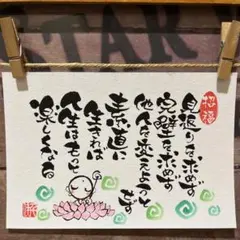 招福
見返りを求めず
完璧を求めず
他人を変えようと
せず
素直に
生きれば
人生はもっと
楽しくなる
STAR